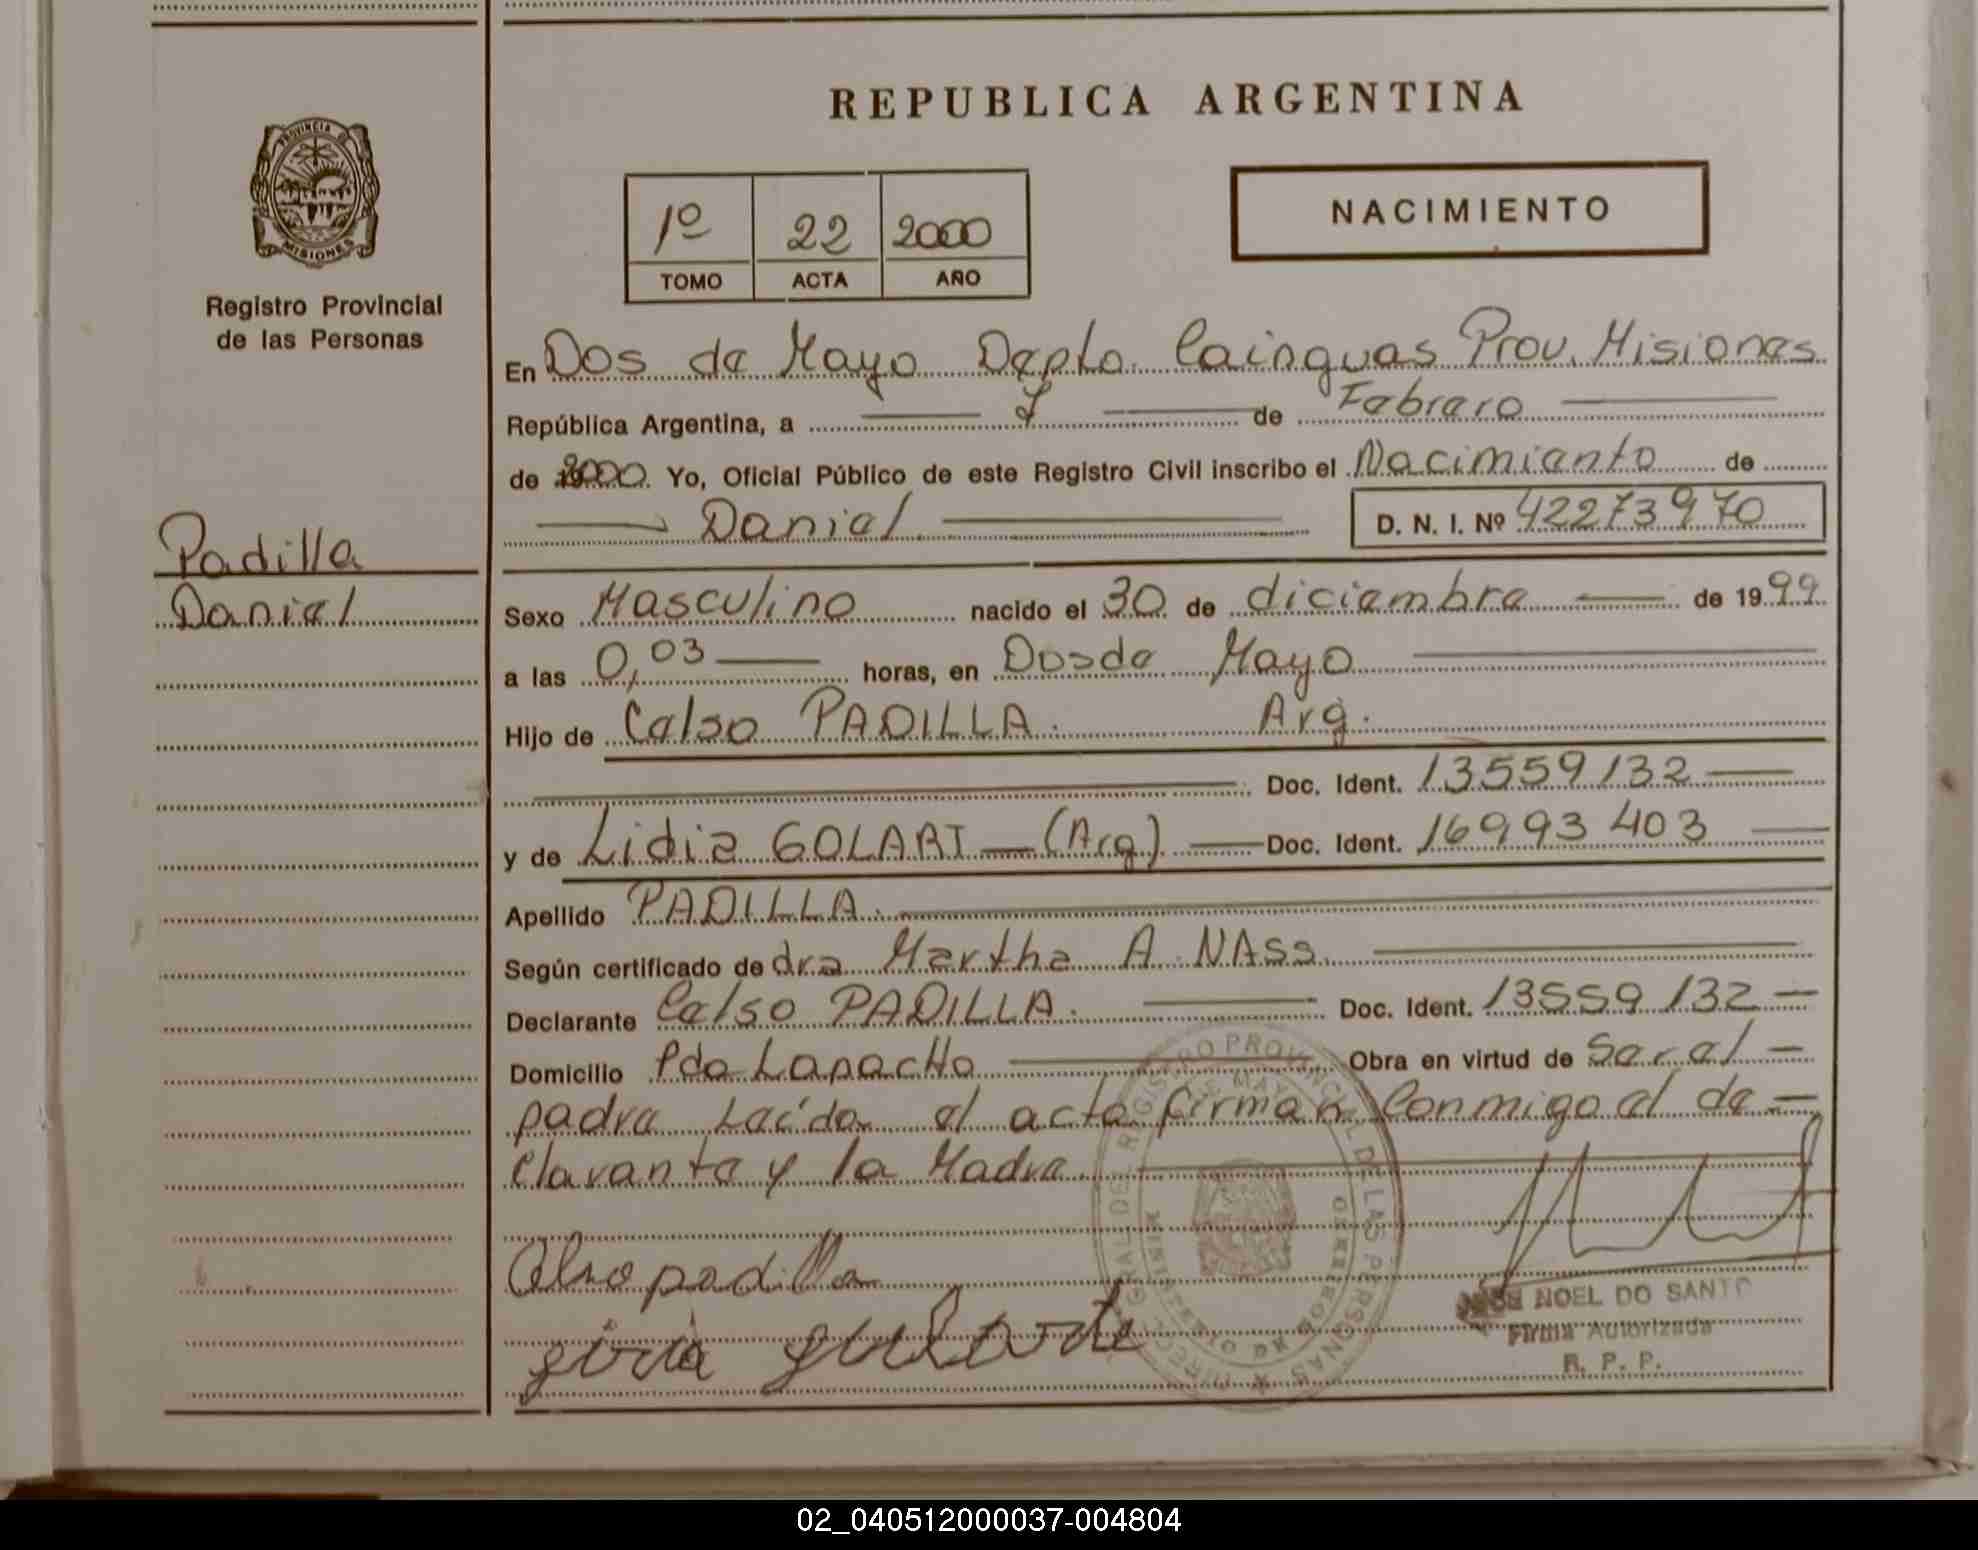 REPUBLICA ARGENTINA
PROVINCIA D
MISIONES
Registro Provincial
de las Personas
1º 22 2000
TOMO ACTA AÑO
NACIMIENTO
En Dos de Mayo Depto. Cainguas Prov. Misiones
República Argentina, a 7 de Febrero
de 2000 Yo, Oficial Público de este Registro Civil inscribo el Nacimiento de
Daniel D. N. I. Nº 42273970
Padilla
Daniel
Sexo Masculino nacido el 30 de diciembre de 1999
a las 0,03 horas, en Dos de Mayo
Hijo de Celso PADILLA. Arg.
Doc. Ident. 13559132
y de Lidia GOLART (Arg) Doc. Ident. 16993403
Apellido PADILLA.
Según certificado de dra Martha A. NAss
Declarante Celso PADILLA. Doc. Ident. 13559132
Domicilio Pdo Lapacho Obra en virtud de Ser el
padre Leída el acta firman Conmigo el de
clarante y la Madre
padilla
JOSE NOEL DO SANTO
Firma Autorizada
R. P. P.
DIRECC GRAL DE REGISTRO PROVINCIAL DE LAS PERSONAS
MINISTERIO DE GOBIERNO
DE MAYO
02_040512000037-004804